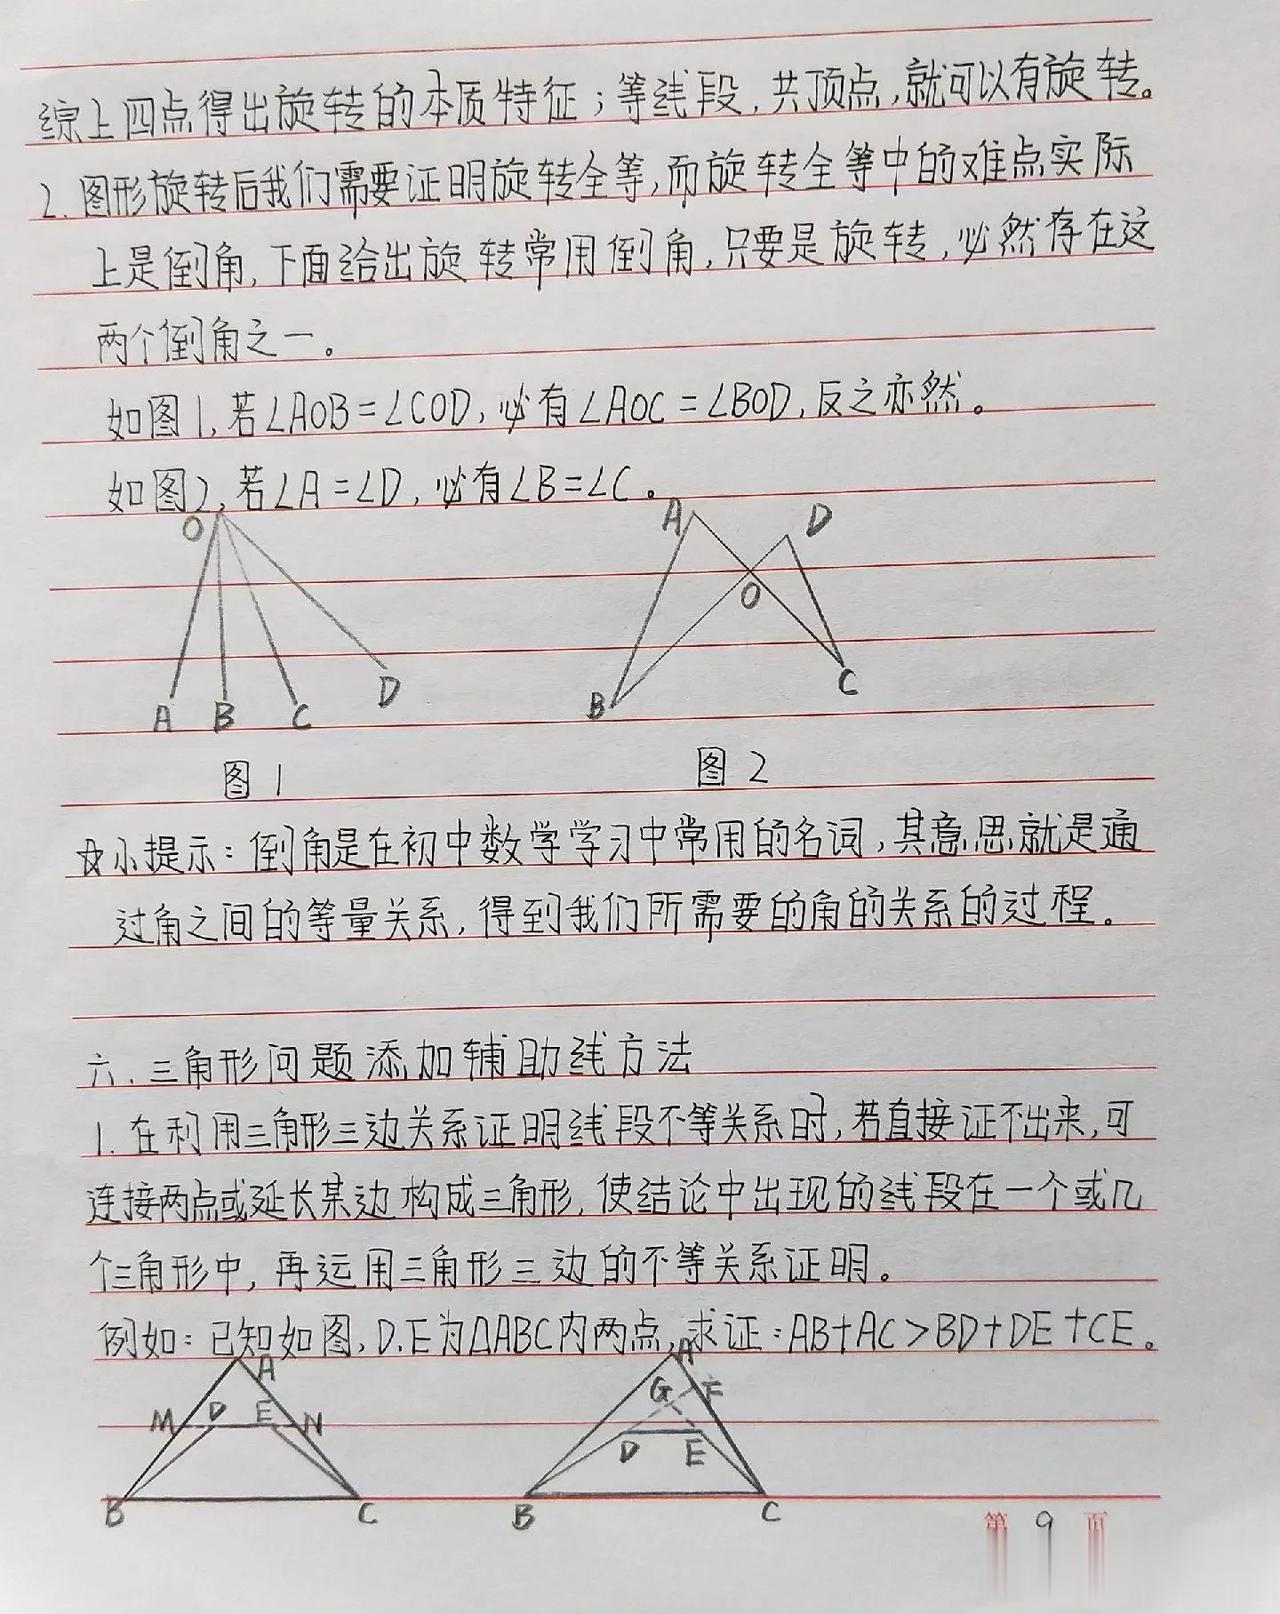 综上四点得出旋转的本质特征；等线段，共顶点，就可以有旋转。
2.图形旋转后我们需要证明旋转全等，而旋转全等中的难点实际
上是倒角，下面给出旋转常用倒角，只要是旋转，必然存在这
两个倒角之一。
如图1，若∠AOB=∠COD，必有∠AOC=∠BOD，反之亦然。
如图2，若∠A=∠D，必有∠B=∠C。
O
A B C D
图1
A D
O
B C
图2
☆小提示：倒角是在初中数学学习中常用的名词，其意思就是通
过角之间的等量关系，得到我们所需要的角的关系的过程。
六．三角形问题添加辅助线方法
1.在利用三角形三边关系证明线段不等关系时，若直接证不出来，可
连接两点或延长某边构成三角形，使结论中出现的线段在一个或几
个三角形中，再运用三角形三边的不等关系证明。
例如：已知如图，D.E为△ABC内两点，求证：AB+AC>BD+DE+CE。
A
M D E N
B C
A
G F
D E
B C
第 9 页